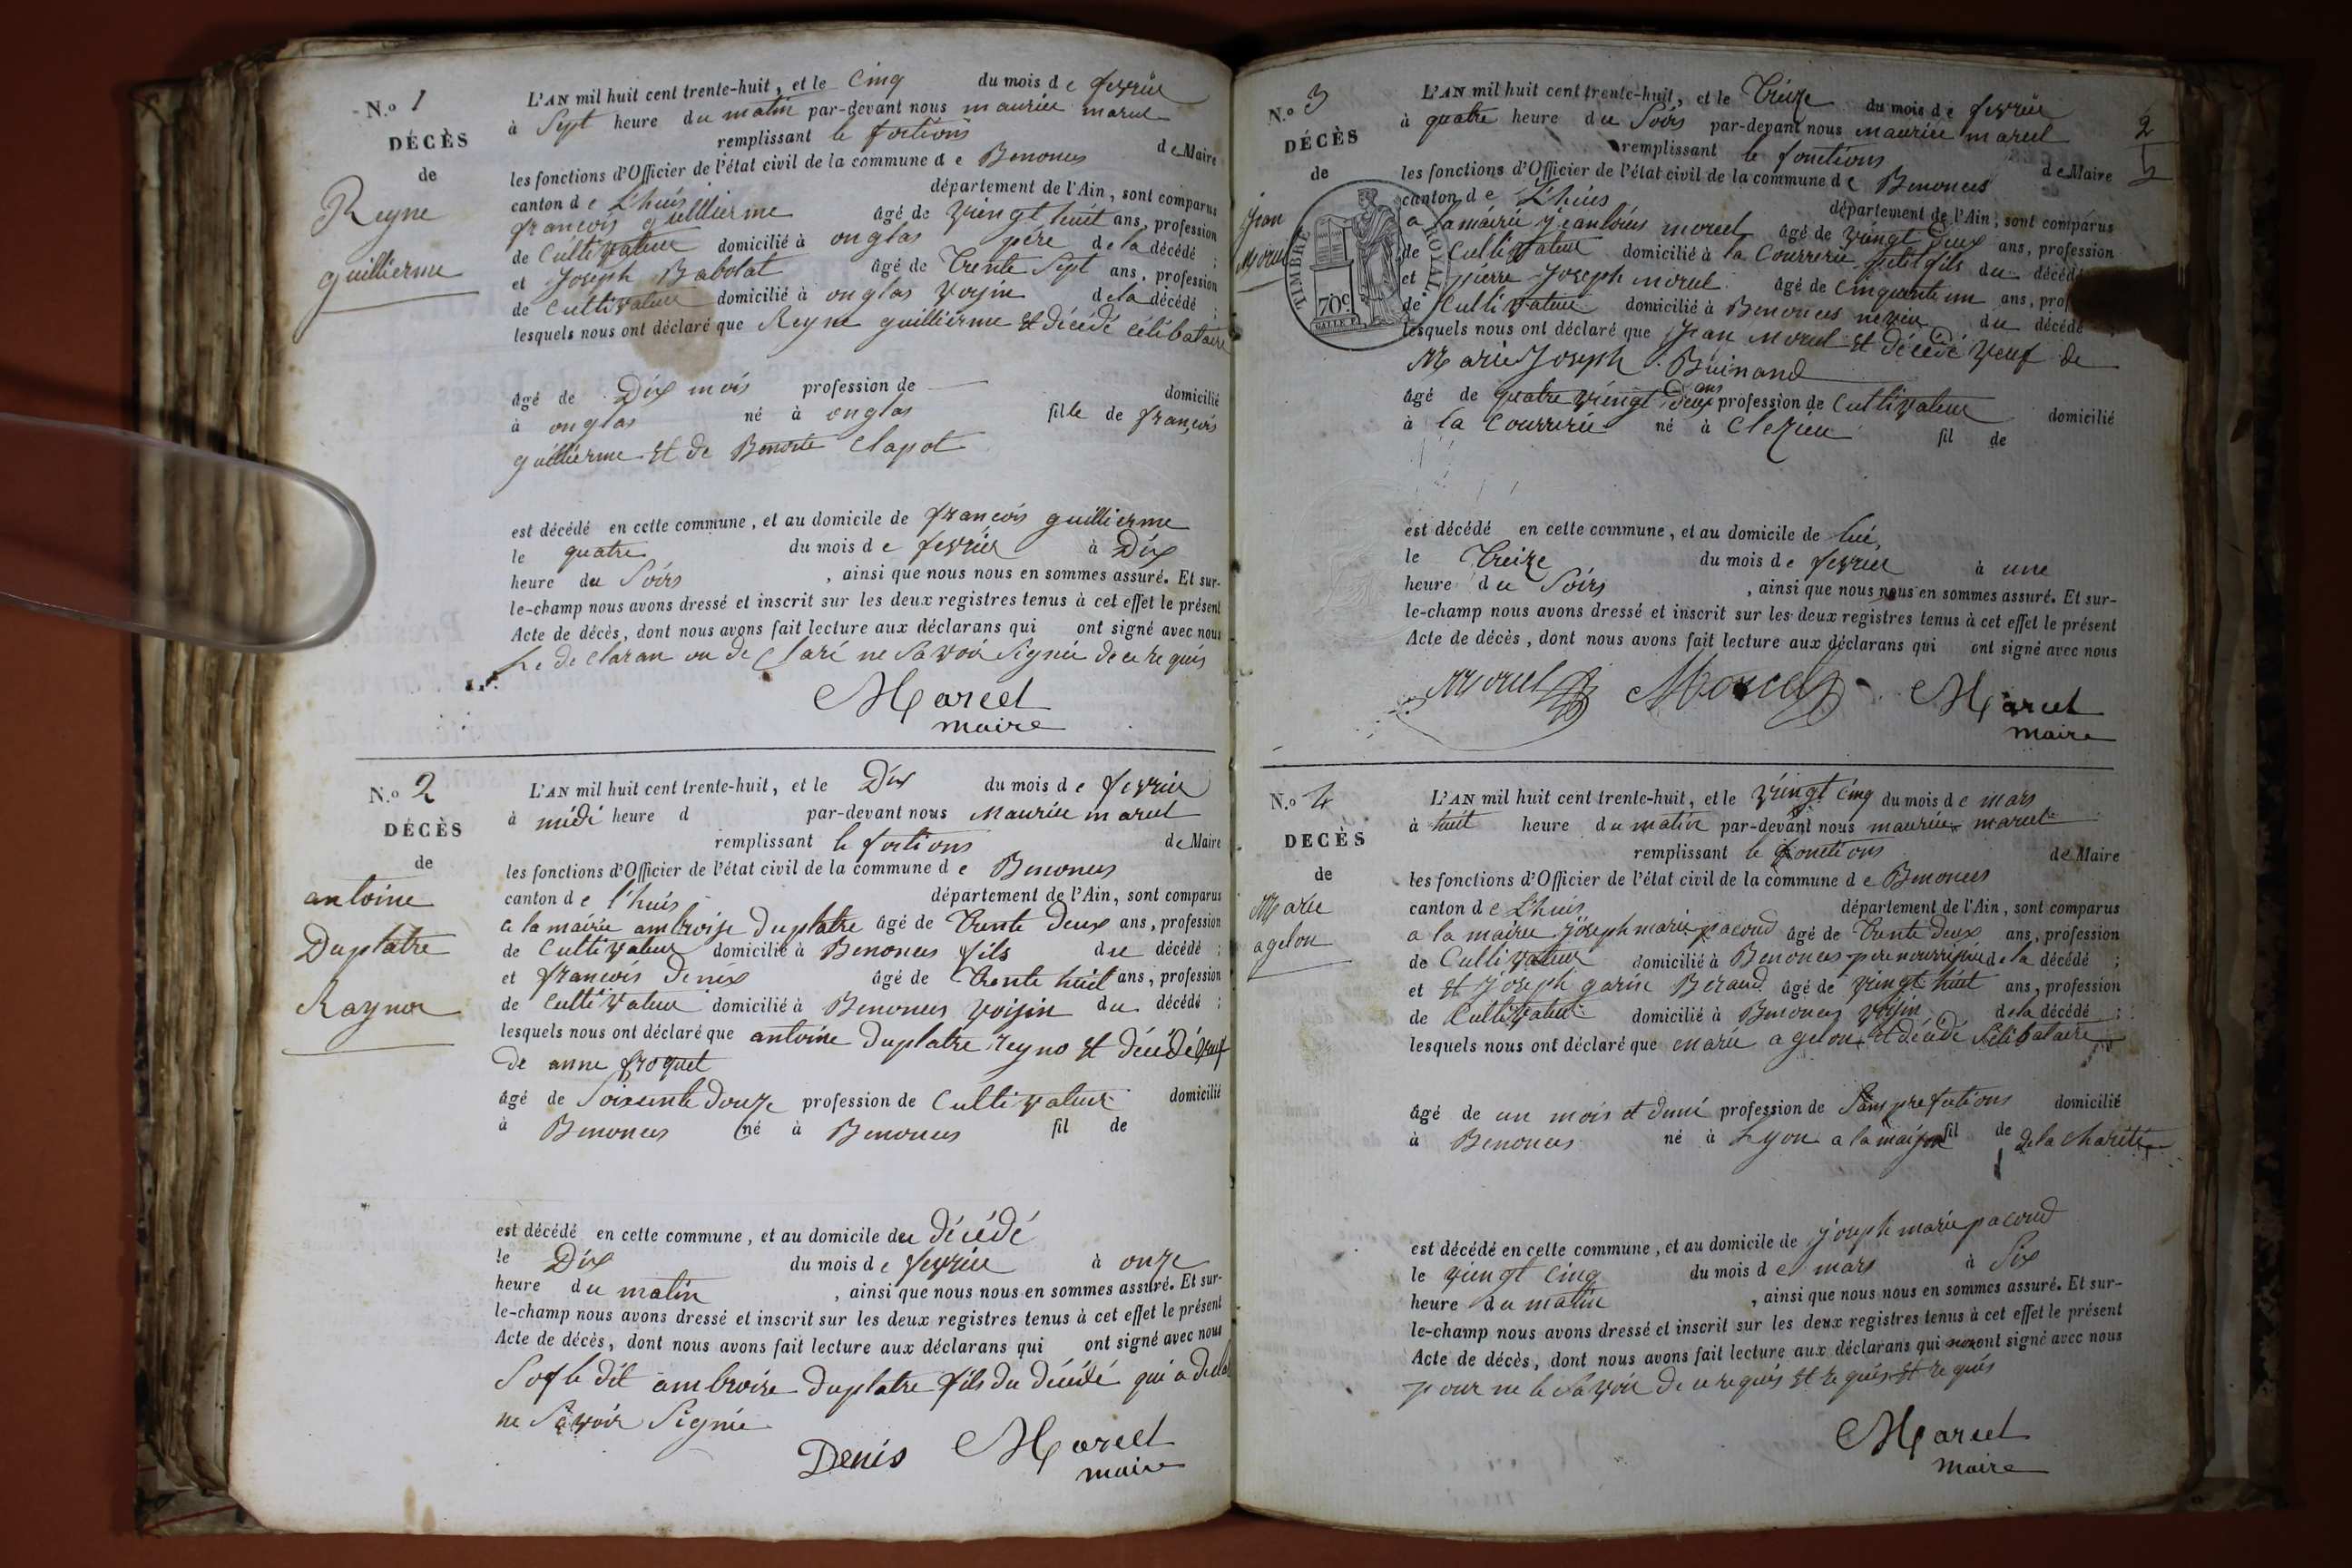 N.o 1
DÉCÈS
de
Reyne
guillierme
L'AN mil huit cent trente-huit, et le Cinq du mois de fevrier
à Sept heure du matin par-devant nous maurice marcel
remplissant le foctions de Maire
les fonctions d'Officier de l'état civil de la commune de Benonces
canton de L'huis département de l'Ain, sont comparus
francois guillierme âgé de vingt huit ans, profession
de Cultivateur domicilié à onglas père de la décédé ;
et Joseph Babolat âgé de Trente Sept ans, profession
de Cultivateur domicilié à onglas voisin de la décédé ;
lesquels nous ont déclaré que Reyne guillierme est décédé célibataire
âgé de Dix mois profession de domicilié
à onglas né à onglas fille de françois
guillierme et de Benoite Clapot
est décédé en cette commune, et au domicile de françois guillierme
le quatre du mois de fevrier à Dix
heure du Soirs , ainsi que nous nous en sommes assuré. Et sur-
le-champ nous avons dressé et inscrit sur les deux registres tenus à cet effet le présent
Acte de décès, dont nous avons fait lecture aux déclarans qui ont signé avec nous
Le de claran on de Claré ne Savoir Signér de ce requis
Marcel
maire
N.o 2
DÉCÈS
de
antoine
Duplatre
Raynor
L'AN mil huit cent trente-huit, et le Dix du mois de fevrier
à midi heure d par-devant nous Maurice marcel
remplissant le foctions de Maire
les fonctions d'Officier de l'état civil de la commune de Benonces
canton de l'huis département de l'Ain, sont comparus
a la mairie ambroise Duplatre âgé de Trente Deux ans, profession
de Cultivateur domicilié à Benonces fils du décédé ;
et francois Denis âgé de Trente huit ans, profession
de Cultivateur domicilié à Benonces voisin du décédé ;
lesquels nous ont déclaré que antoine Duplatre reyno est décédé veuf
de anne froquet
âgé de Soixente douze profession de Cultivateur domicilié
à Benonces né à Benonces fil de
est décédé en cette commune, et au domicile du décédé
le Dix du mois de fevrier à onze
heure du matin , ainsi que nous nous en sommes assuré. Et sur-
le-champ nous avons dressé et inscrit sur les deux registres tenus à cet effet le présent
Acte de décès, dont nous avons fait lecture aux déclarans qui ont signé avec nous
Sof le dit ambroise duplatre fils du décédé qui a
ne Savoir Signée
Denis Marcel
maire
2
N.o 3
DÉCÈS
de
Jean
Morel
TIMBRE ROYAL
70c.
L'AN mil huit cent trente-huit, et le Treize du mois de fevrier
à quatre heure du Soirs par-devant nous maurice marcel
remplissant le fonctions de Maire
les fonctions d'Officier de l'état civil de la commune de Benonces
canton de L'huis département de l'Ain, sont comparus
a la mairie jeanlouis morel âgé de vingt Deux ans, profession
de Cultivateur domicilié à la Courrerie petit fils du décédé
et pierre Joseph morel âgé de Cinquente un ans, prof
de Cultivateur domicilié à Benonces neveu du décédé
lesquels nous ont déclaré que Jean Morel est décédé veuf de
Marie Joseph Buinand
âgé de quatre vingt deux ans profession de Cultivateur domicilié
à la Courrerie né à Clezieu fil de
est décédé en cette commune, et au domicile de lui
le Treize du mois de fevrier à une
heure du Soirs , ainsi que nous nous en sommes assuré. Et sur-
le-champ nous avons dressé et inscrit sur les deux registres tenus à cet effet le présent
Acte de décès, dont nous avons fait lecture aux déclarans qui ont signé avec nous
Morel Morel Marcel
maire
N.o 4
DÉCÈS
de
Marie
agelon
L'AN mil huit cent trente-huit, et le vingt Cinq du mois de mars
à huit heure du matin par-devant nous maurice marcel
remplissant le fonctions de Maire
les fonctions d'Officier de l'état civil de la commune de Benonces
canton de L'huis département de l'Ain, sont comparus
a la mairie joseph marie pacoud âgé de Trente deux ans, profession
de Cultivateur domicilié à Benonces pere nourrisié de la décédé ;
et et joseph garin Beraud âgé de vingt huit ans, profession
de Cultivateur domicilié à Benonces voisin de la décédé ;
lesquels nous ont déclaré que marie agelon est décédé Célibataire
âgé de un mois et demi profession de Sans profetions domicilié
à Benonces né à Lyon a la maison fil de de la charité
est décédé en cette commune, et au domicile de joseph marie pacoud
le vingt Cinq du mois de mars à Six
heure du matin , ainsi que nous nous en sommes assuré. Et sur-
le-champ nous avons dressé et inscrit sur les deux registres tenus à cet effet le présent
Acte de décès, dont nous avons fait lecture aux déclarans qui non ont signé avec nous
pour ne le Savoir de ce requis et requis et requis
Marcel
Maire